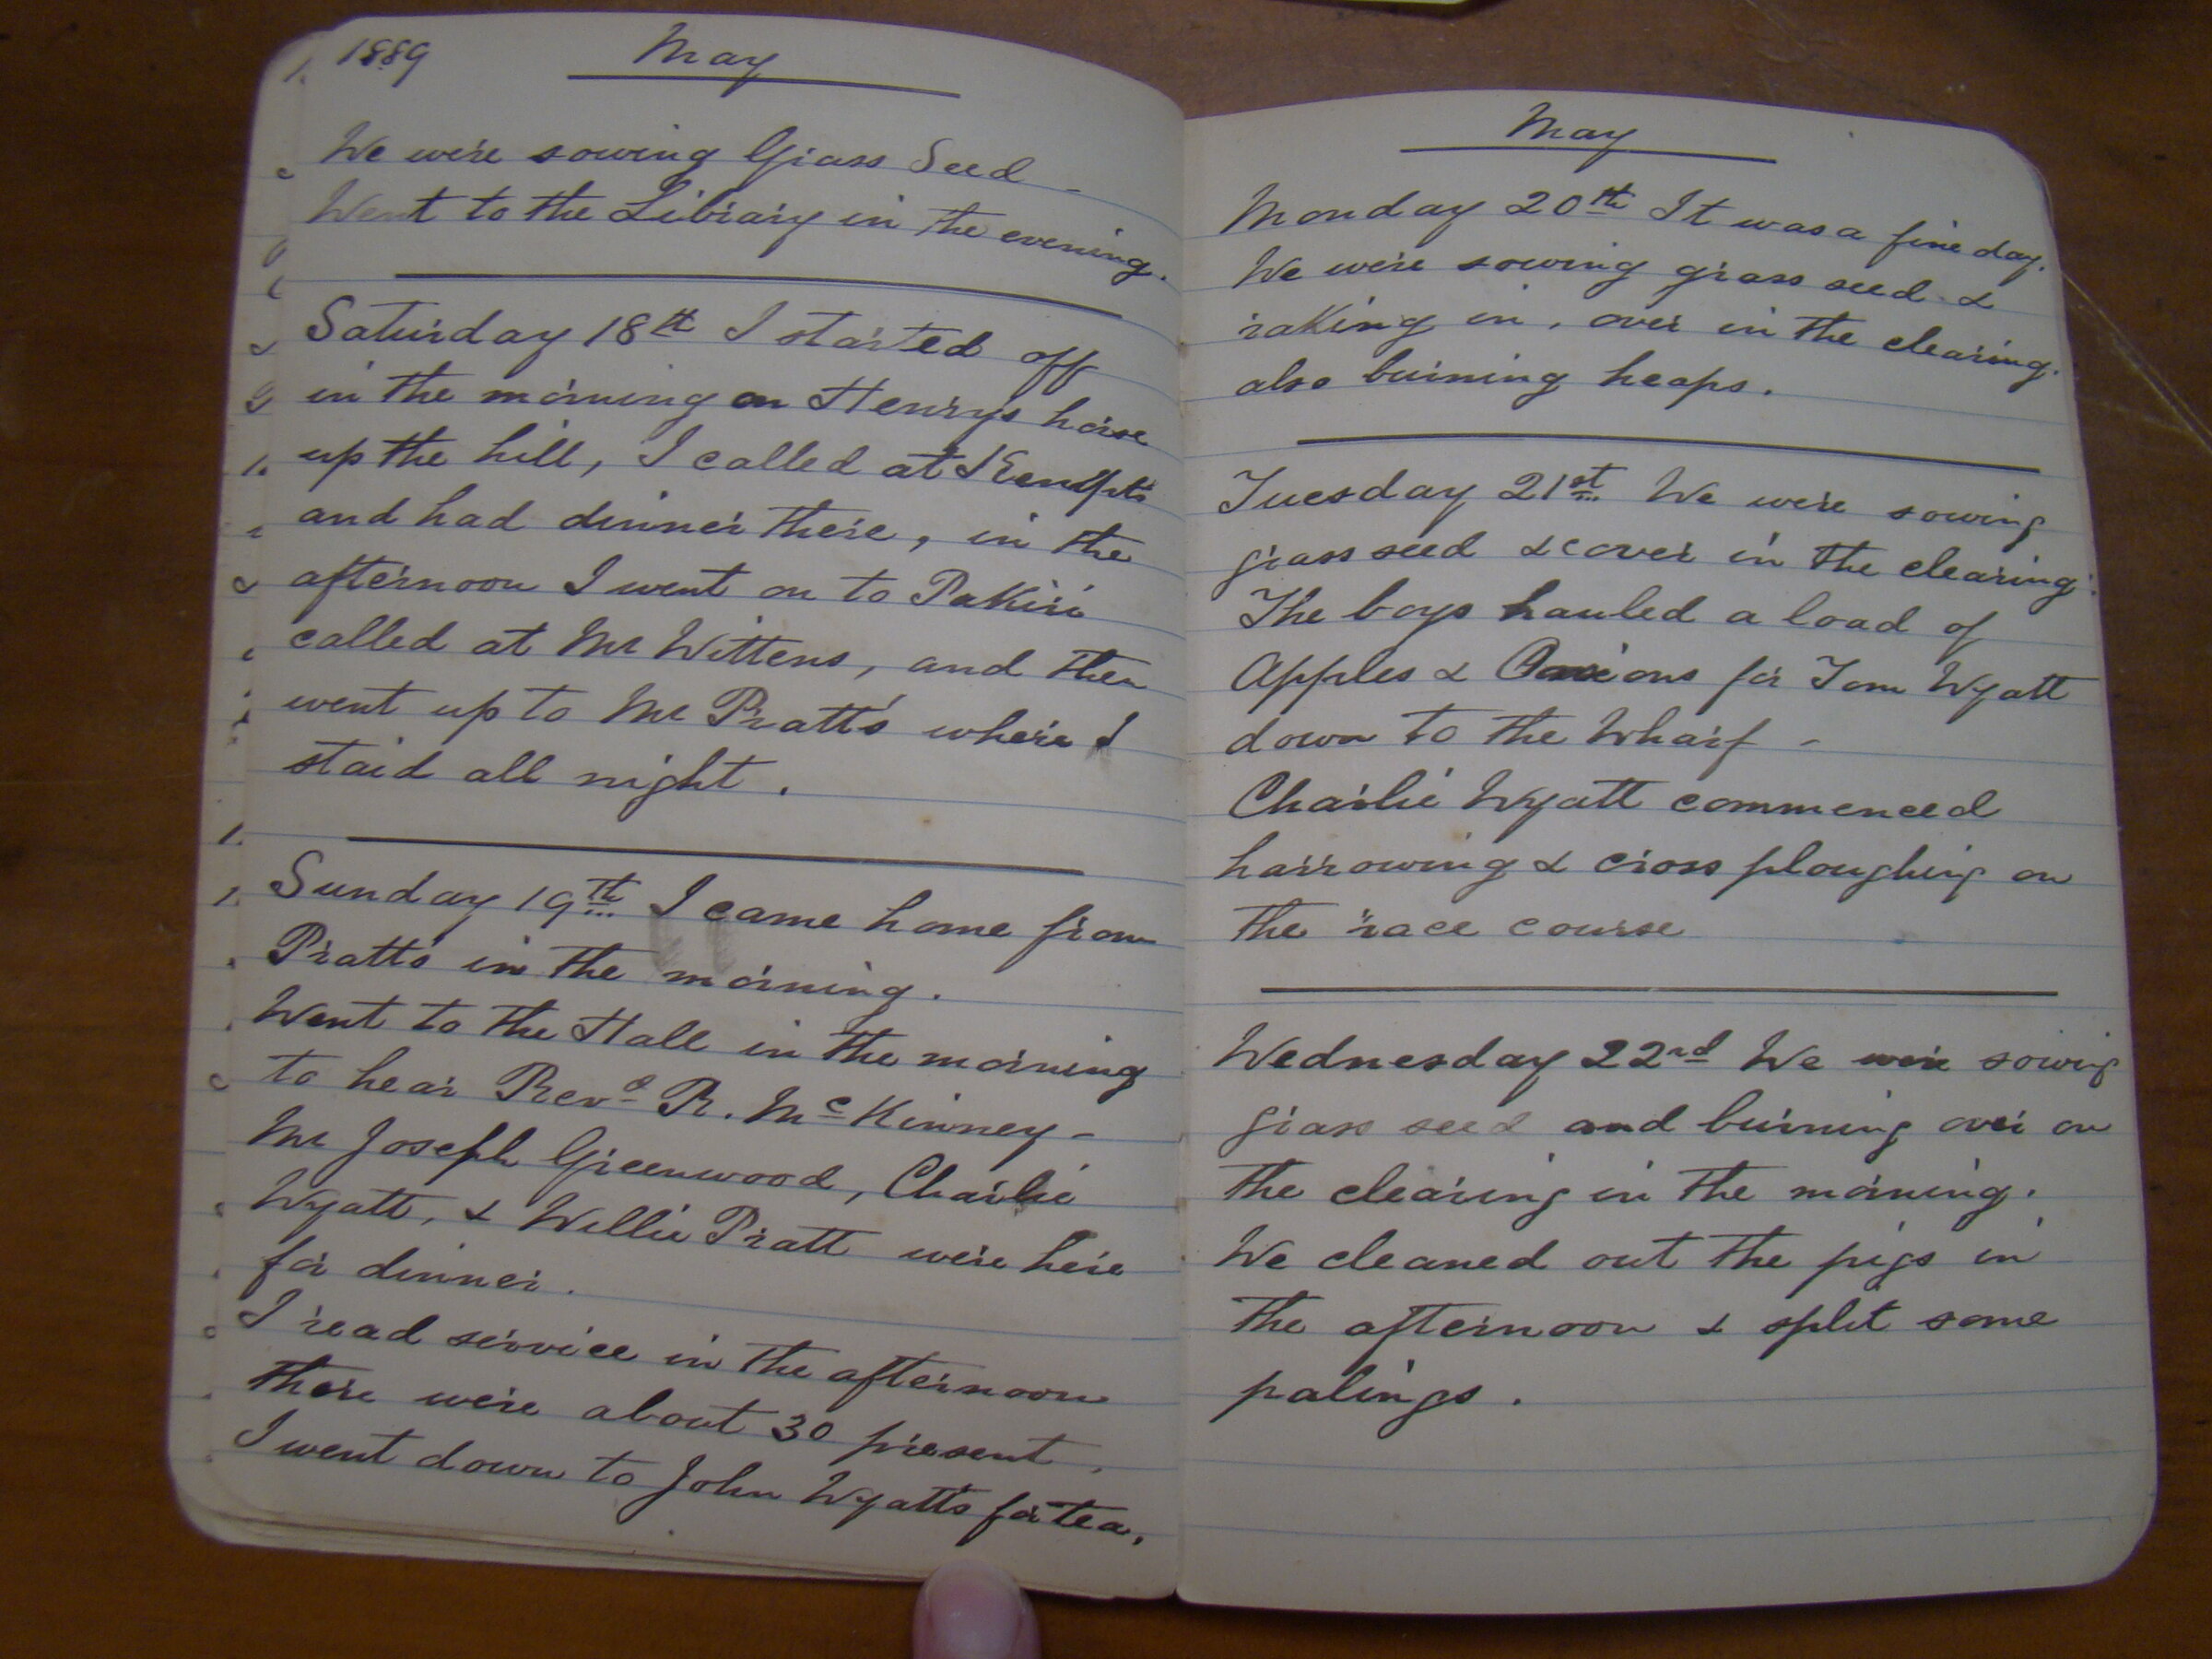 1889 May
We were sowing Grass Seed -
Went to the Library in the evening.
Saturday 18th I started off
in the morning on Henrys horse
up the hill, I called at
and had dinner there, in the
afternoon I went on to Pakiri
called at Mr Wittens, and then
went up to Mr Pratt's where I
staid all night.
Sunday 19th I came home from
Pratt's in the morning.
Went to the Hall in the morning
to hear Revd R. McKinney -
Mr Joseph Greenwood, Charlie
Wyatt, & Willie Pratt were here
for dinner.
I read service in the afternoon
there were about 30 present.
I went down to John Wyatt's for tea.
May
Monday 20th It was a fine day.
We were sowing grass seed &
raking in, over in the clearing.
also burning heaps.
Tuesday 21st We were sowing
grass seed &c over in the clearing.
The boys hauled a load of
Apples & Onions for Tom Wyatt
down to the Wharf -
Charlie Wyatt commenced
harrowing & cross ploughing on
the race course
Wednesday 22nd We were sowing
grass seed and burning over on
the clearing in the morning.
We cleaned out the pigs in
the afternoon & split some
palings.